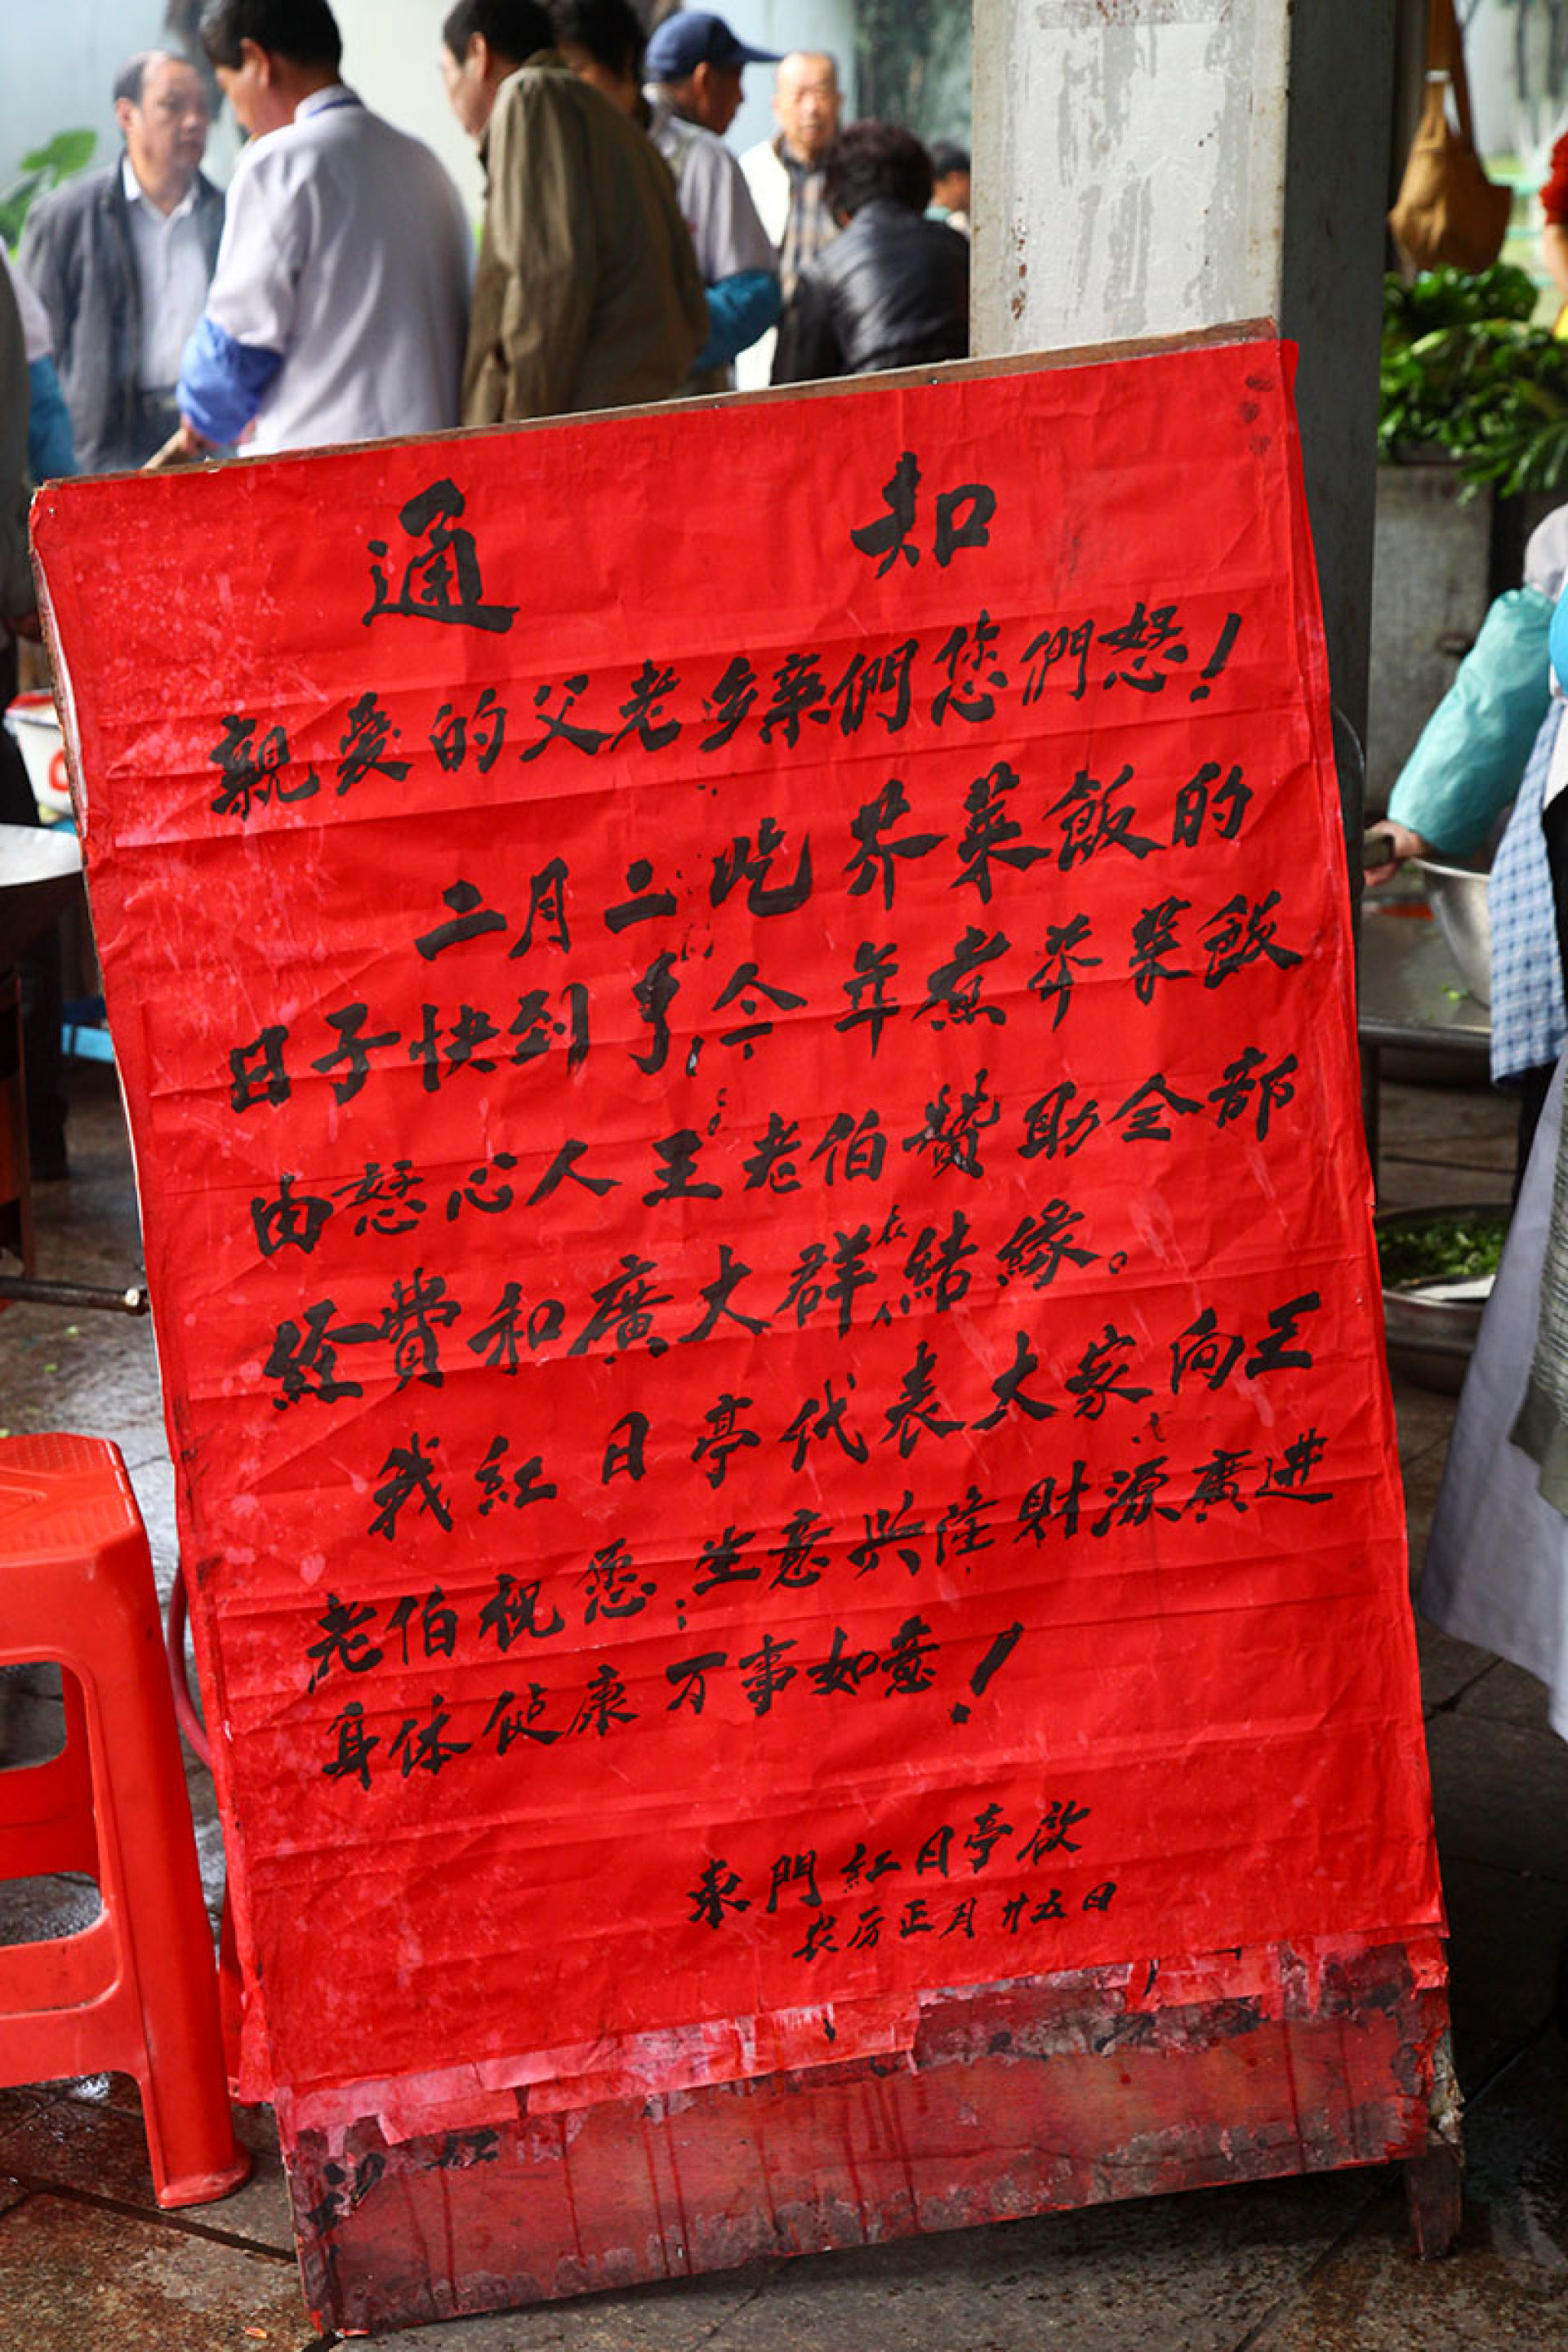 通知
親爱的父老乡亲們您們好!
二月二吃芥菜飯的
日子快到了,今年煮芥菜飯
由好心人王老伯贊助全部
经費和廣大群众結緣。
我紅日亭代表大家向王
老伯祝愿:生意兴隆财源廣进
身体健康万事如意!
东門紅日亭启
农历正月廿五日